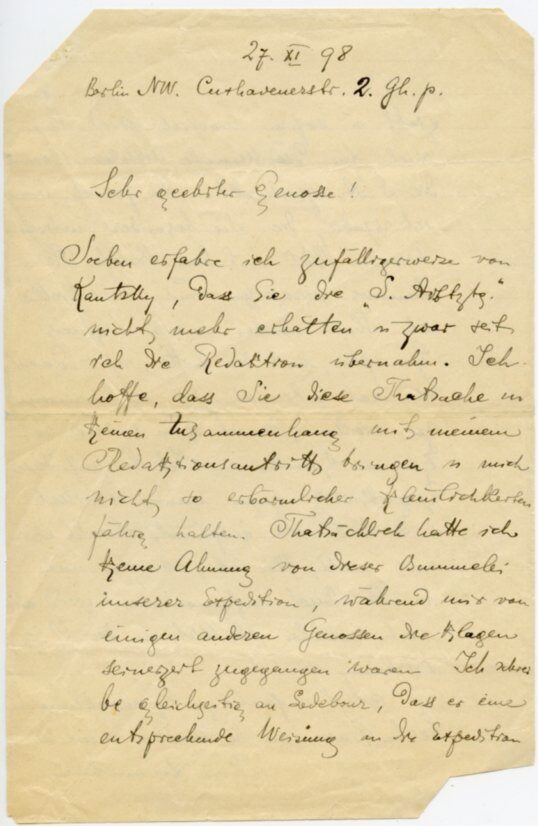 27. XI 98
Berlin NW. Cuxhavenerstr. 2. Gh. p.
Sehr geehrter Genosse!
Soeben erfahre ich zufälligerweise von
Kautsky, dass Sie die „S. Arbtztg."
nicht mehr erhalten u zwar seit
ich die Redaktion übernahm. Ich
hoffe, dass Sie diese Thatsache in
keinen Zusammenhang mit meinem
Redaktionsantritt bringen u mich
nicht so erbärmlicher Kleinlichkeiten
fähig halten. Thatsächlich hatte ich
keine Ahnung von dieser Bummelei
unserer Expedition, während mir von
einigen anderen Genossen die Klagen
seinerzeit zugegangen waren Ich schrei
be gleichzeitig an Ledebour, dass er eine
entsprechende Weisung an die Expedition